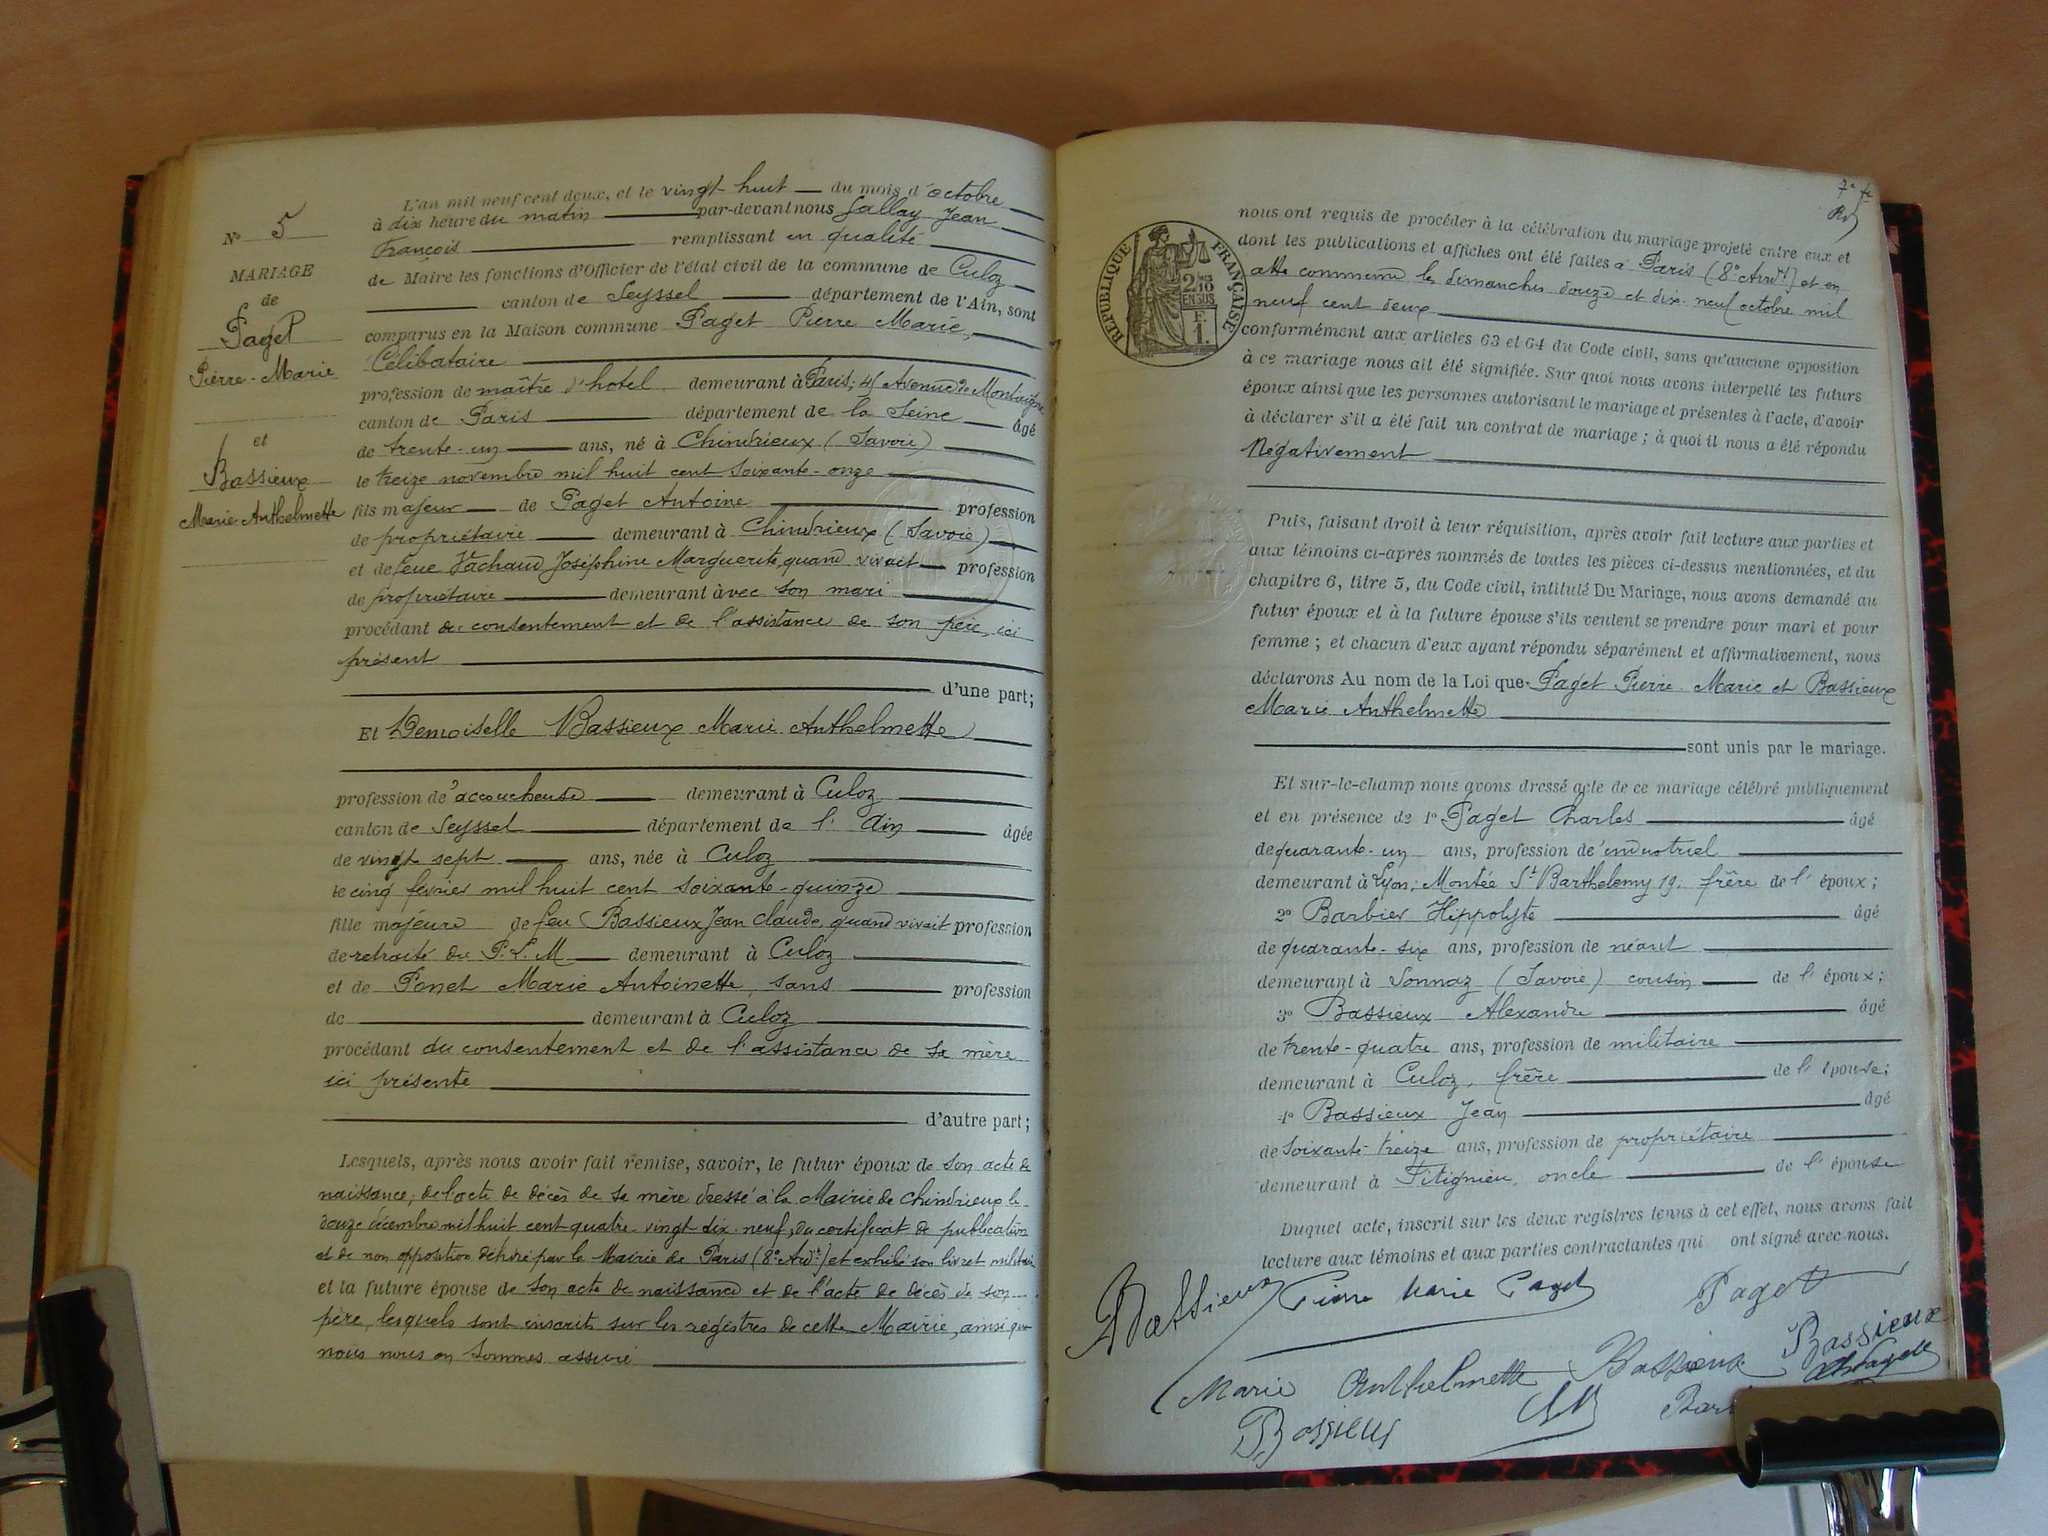 N° 5
MARIAGE
de
Paget
Pierre-Marie
et
Bassieux
Marie-Anthelmette
L'an mil neuf cent deux, et le vingt-huit du mois d'octobre
à dix heure du matin par-devant nous Jallay Jean
François remplissant en qualité
de Maire les fonctions d'Officier de l'état civil de la commune de Culoz
canton de Seyssel département de l'Ain, sont
comparus en la Maison commune Paget Pierre Marie,
Célibataire
profession de maître d'hotel demeurant à Paris, Avenue de Montaigne
canton de Paris département de la Seine âgé
de trente-un ans, né à Chindrieux (Savoie)
le treize novembre mil huit cent soixante-onze
fils majeur de Paget Antoine profession
de propriétaire demeurant à Chindrieux (Savoie)
et de feue Vachaud Joséphine Marguerite, quand vivait profession
de propriétaire demeurant avec son mari
procédant du consentement et de l'assistance de son père, ici
présent
d'une part;
Et Demoiselle Bassieux Marie Anthelmette
profession d'accoucheuse demeurant à Culoz
canton de Seyssel département de l'Ain âgée
de vingt sept ans, née à Culoz
le cinq février mil huit cent soixante-quinze
fille majeure de feu Bassieux Jean Claude, quand vivait profession
de retraité du P.L.M demeurant à Culoz
et de Ponet Marie Antoinette, sans profession
de demeurant à Culoz
procédant du consentement et de l'assistance de sa mère
ici présente
d'autre part;
Lesquels, après nous avoir fait remise, savoir, le futur époux de son acte de
naissance, de l'acte de décès de sa mère dressé à la Mairie de Chindrieux le
douze décembre mil huit cent quatre-vingt dix-neuf, du certificat de publication
et de non opposition délivré par la Mairie de Paris (8e Ardt) et exhibé son livret militaire
et la future épouse de son acte de naissance et de l'acte de décès de son
père, lesquels sont inscrits sur les registres de cette Mairie, ainsi que
nous nous en sommes assuré
7e fe
RÉPUBLIQUE FRANÇAISE
2/10 EN SUS
F. 1.
nous ont requis de procéder à la célébration du mariage projeté entre eux et
dont les publications et affiches ont été faites à Paris (8e Ardt) et en
cette commune les dimanches douze et dix-neuf octobre mil
neuf cent deux
conformément aux articles 63 et 64 du Code civil, sans qu'aucune opposition
à ce mariage nous ait été signifiée. Sur quoi nous avons interpellé les futurs
époux ainsi que les personnes autorisant le mariage et présentes à l'acte, d'avoir
à déclarer s'il a été fait un contrat de mariage; à quoi il nous a été répondu
Négativement
Puis, faisant droit à leur réquisition, après avoir fait lecture aux parties et
aux témoins ci-après nommés de toutes les pièces ci-dessus mentionnées, et du
chapitre 6, titre 5, du Code civil, intitulé Du Mariage, nous avons demandé au
futur époux et à la future épouse s'ils veulent se prendre pour mari et pour
femme; et chacun d'eux ayant répondu séparément et affirmativement, nous
déclarons Au nom de la Loi que Paget Pierre-Marie et Bassieux
Marie Anthelmette
sont unis par le mariage.
Et sur-le-champ nous avons dressé acte de ce mariage célébré publiquement
et en présence de 1° Paget Charles âgé
de quarante-un ans, profession de industriel
demeurant à Lyon; Montée St Barthelemy 19. frère de l'époux;
2° Barbier Hippolyte âgé
de quarante-six ans, profession de néant
demeurant à Sonnaz (Savoie) cousin de l'époux;
3° Bassieux Alexandre âgé
de trente-quatre ans, profession de militaire
demeurant à Culoz, frère de l'épouse;
4° Bassieux Jean âgé
de soixante-treize ans, profession de propriétaire
demeurant à Pitignieu, oncle de l'épouse
Duquel acte, inscrit sur les deux registres tenus à cet effet, nous avons fait
lecture aux témoins et aux parties contractantes qui ont signé avec nous.
Bassieux Pierre Marie Paget Paget
Marie Anthelmette Bassieux Bassieux
Bassieux